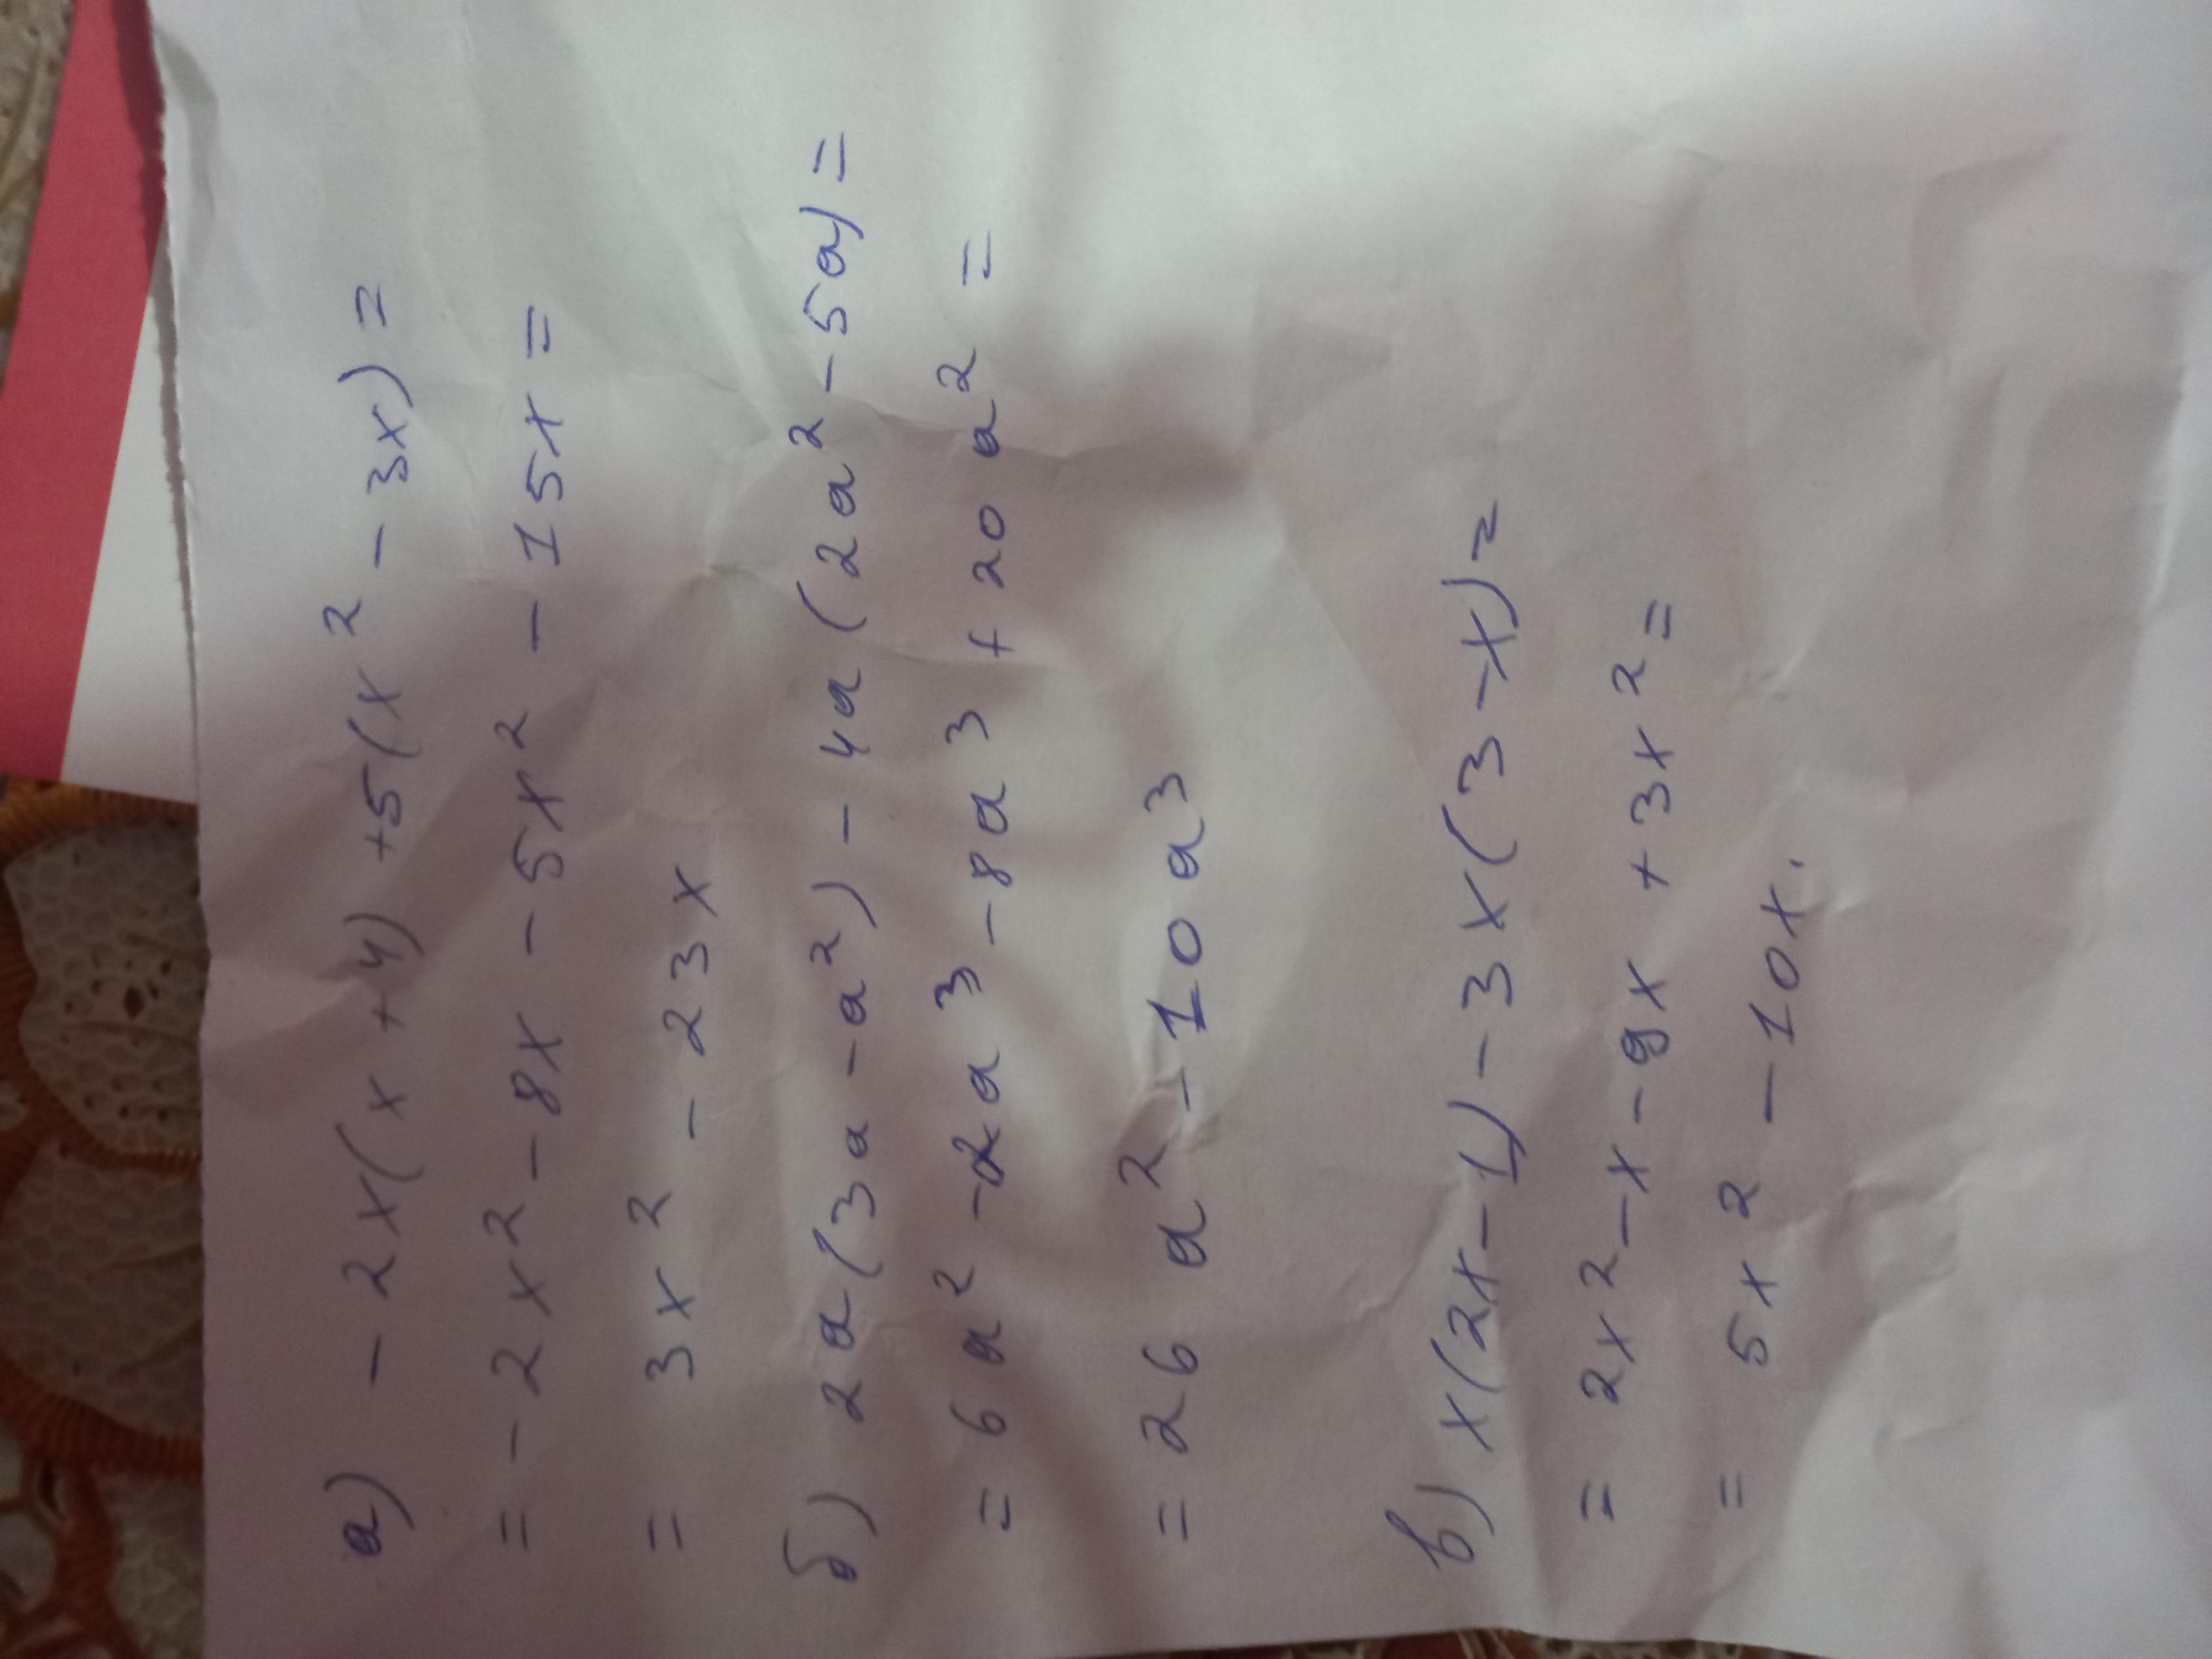 а) - 2x(x+4) +5(x² - 3x) =
= - 2x² - 8x - 5x² - 15x =
= 3x² - 23x
б) 2a(3a-a²) - 4a(2a² - 5a) =
= 6a² - 2a³ - 8a³ + 20a² =
= 26a² - 10a³
в) x(2x-1) - 3x(3-x) =
= 2x² - x - 9x + 3x² =
= 5x² - 10x.